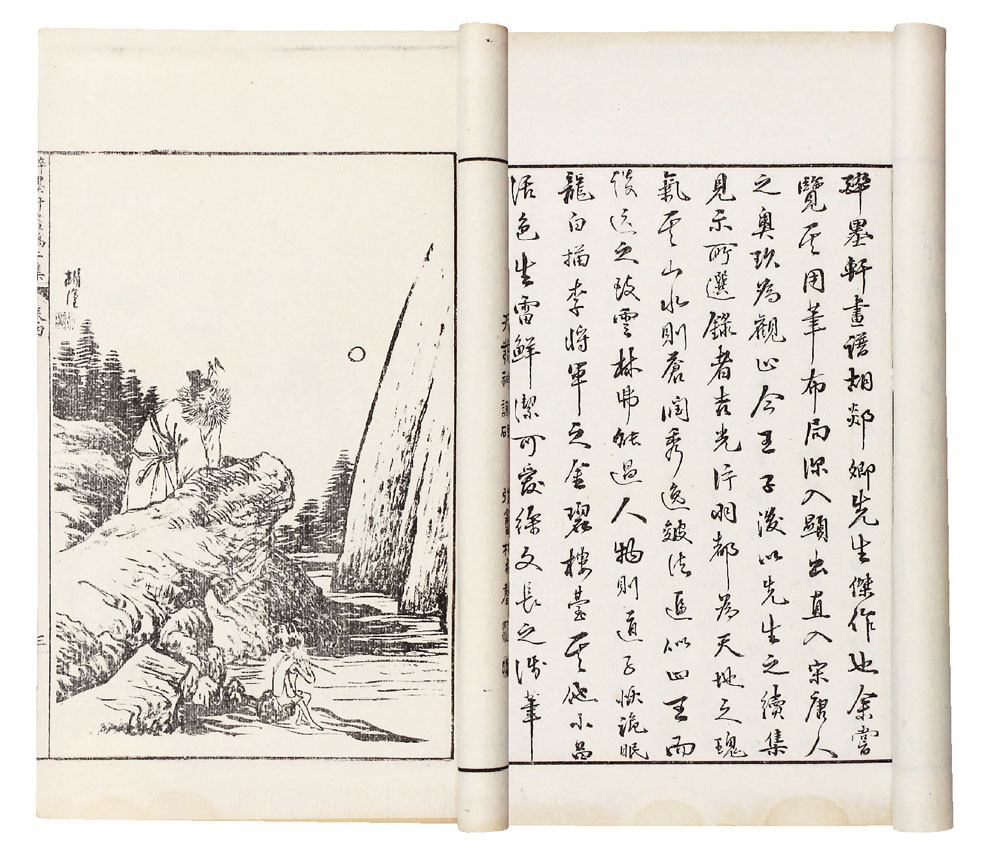 醉墨軒畫譜胡郯卿先生傑作也余嘗
覽其用筆布局深入顯出直入宋唐人
之奧玅為觀止今王子浚以先生之續集
見示所選錄者吉光片羽都為天地之瑰
氣其山水則蒼潤秀逸皴法逼似四王而
遠之致雲林弗能過人物則道子恢詭眠
龍白描李將軍之金碧樓臺其他小品
活色生香鮮潔可愛徐文長之筆
胡
卷四
三